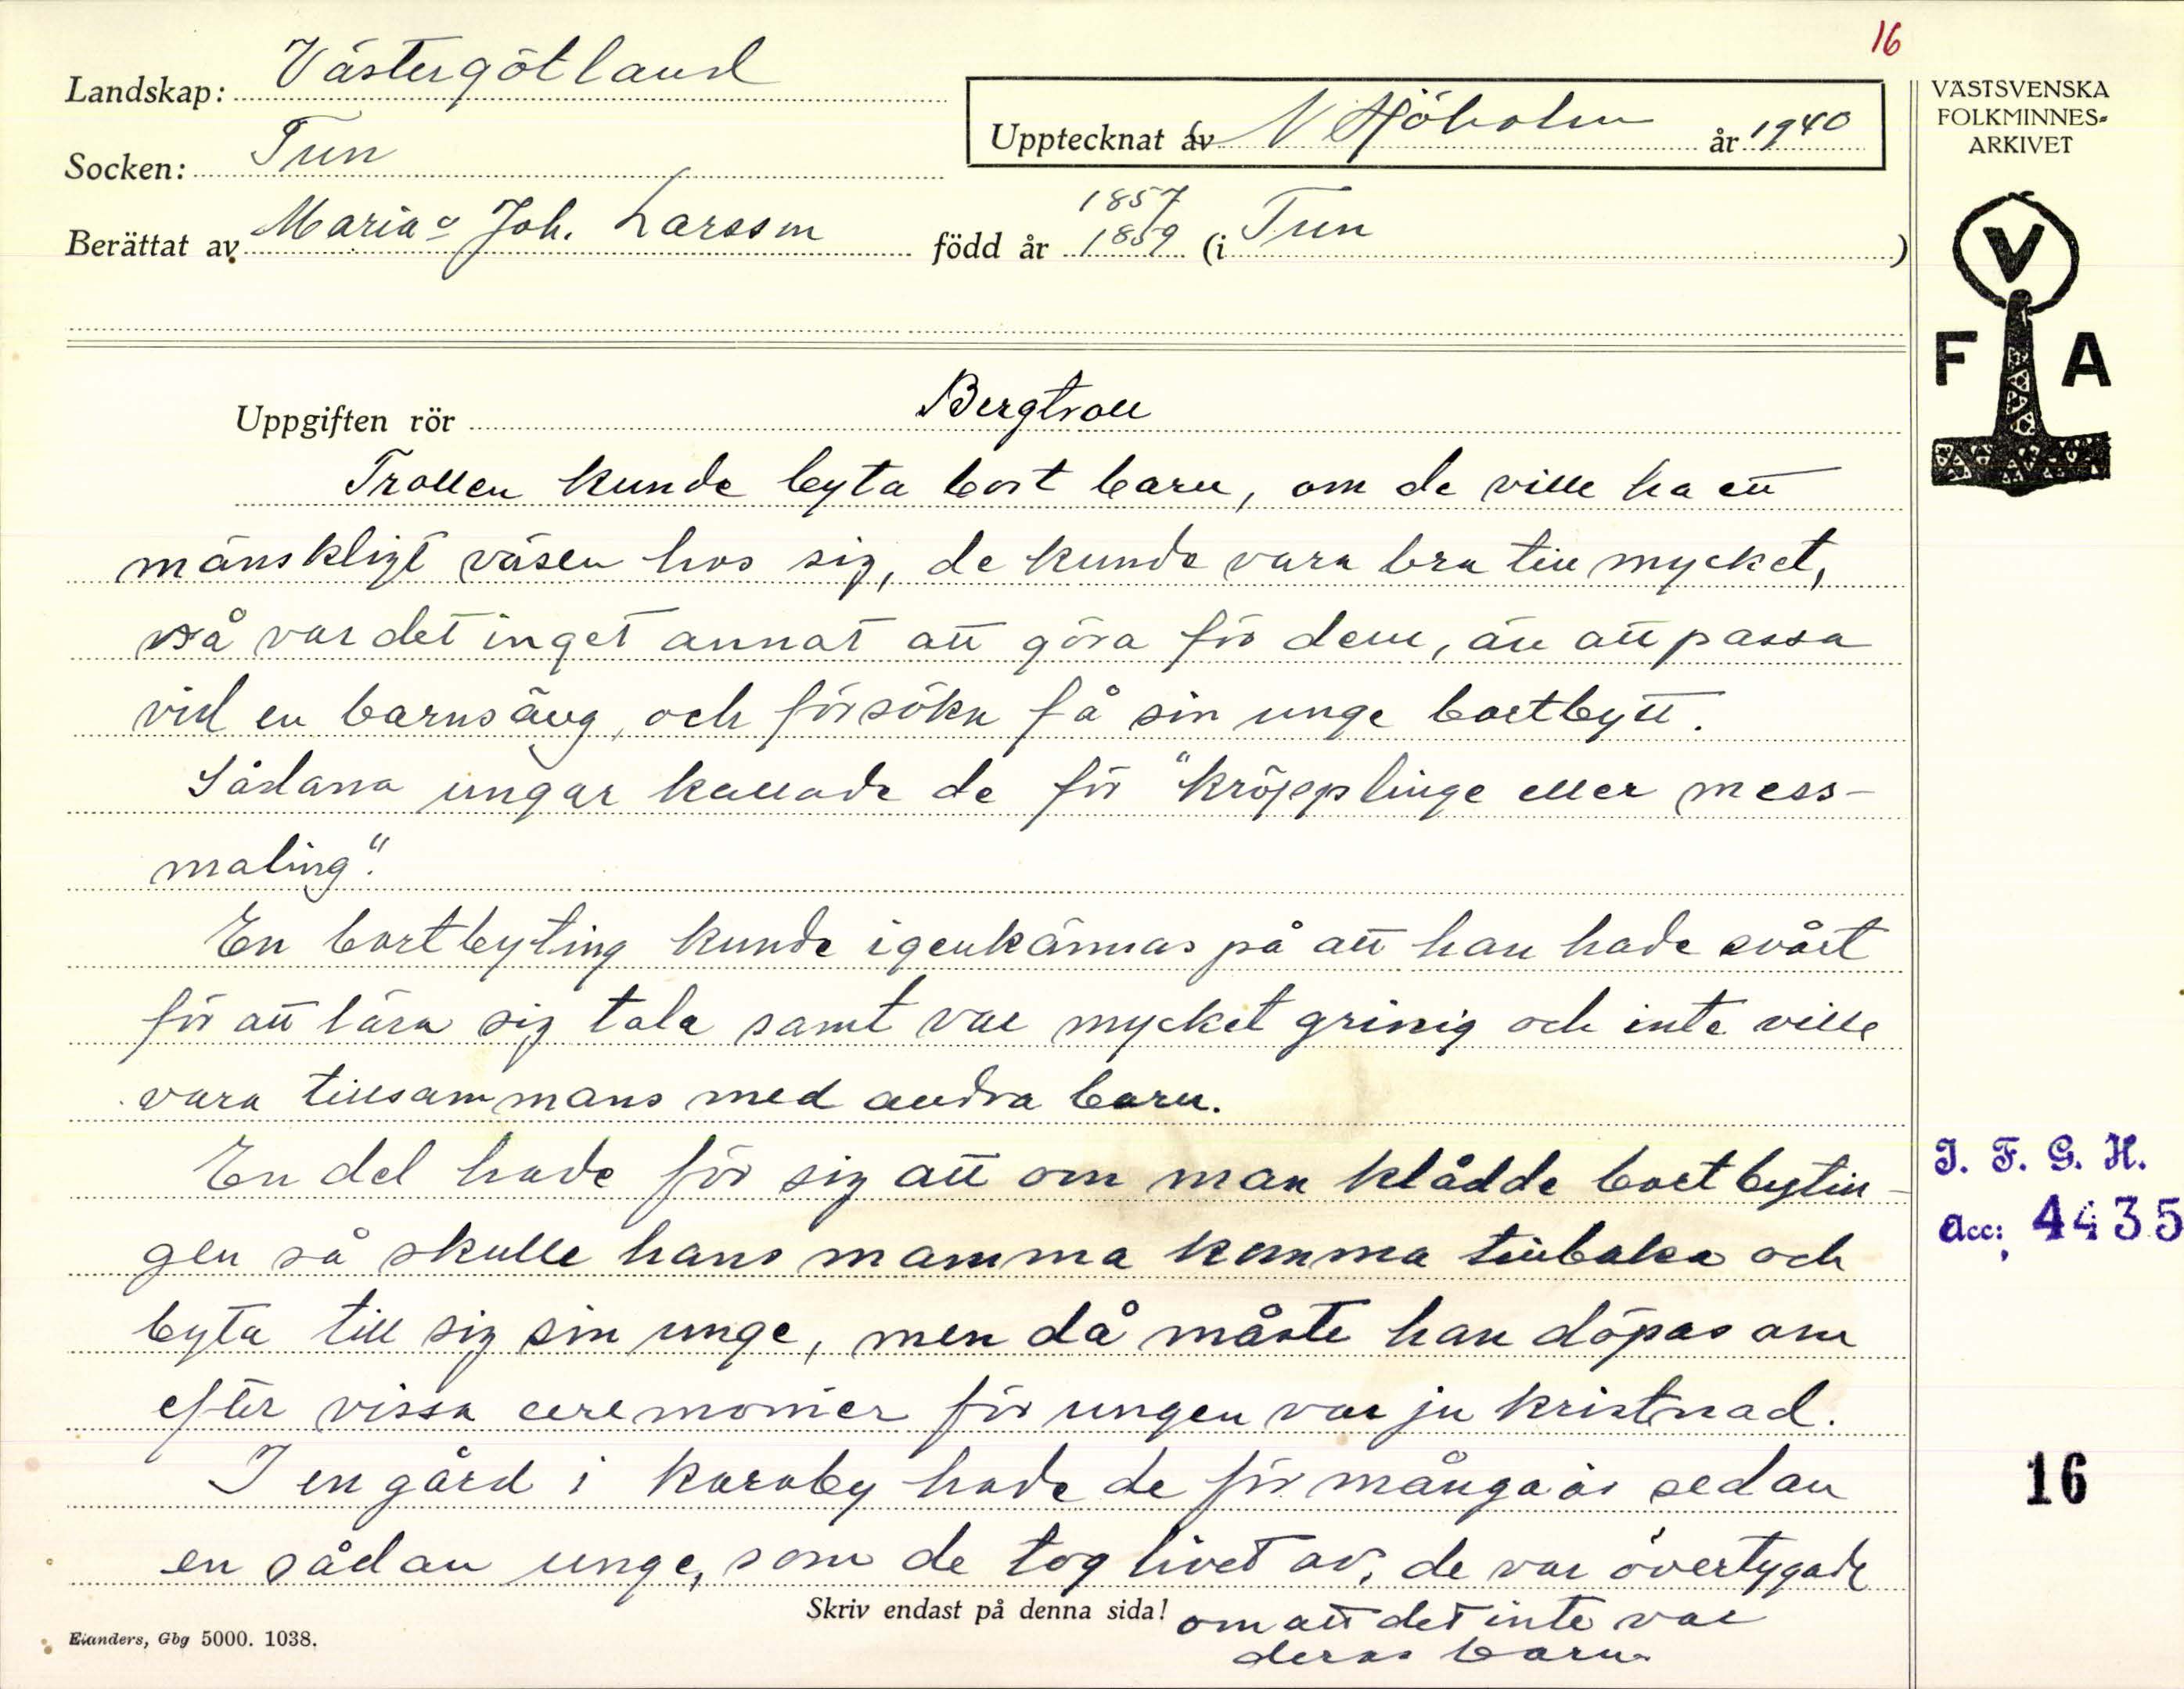 16
Landskap: Västergötland
Socken: Tun
Upptecknat av N Sjöholm år 1940
Berättat av Maria o Joh. Larsson född år 1857 1859 (i Tun )
VÄSTSVENSKA
FOLKMINNES-
ARKIVET
V
F A
Uppgiften rör Bergtroll
Trollen kunde byta bort barn, om de ville ha ett
mänskligt väsen hos sig, de kunde vara bra till mycket,
så var det inget annat att göra för dem, än att passa
vid en barnsäng, och försöka få sin unge bortbytt.
Sådana ungar kallade de för "kröpplinge eller mess-
maling".
En bortbyting kunde igenkännas på att han hade svårt
för att lära sig tala samt var mycket grinig och inte ville
vara tillsammans med andra barn.
En del hade för sig att om man klådde bortbytin-
gen så skulle hans mamma komma tillbaka och
byta till sig sin unge, men då måste han döpas om
efter vissa ceremonier för ungen var ju kristnad.
I en gård i Karaby hade de för många år sedan
en sådan unge, som de tog livet av, de var övertygade
om att det inte var
deras barn.
Skriv endast på denna sida!
Elanders, Gbg 5000. 1038.
I. F. G. H.
Acc: 4435
16